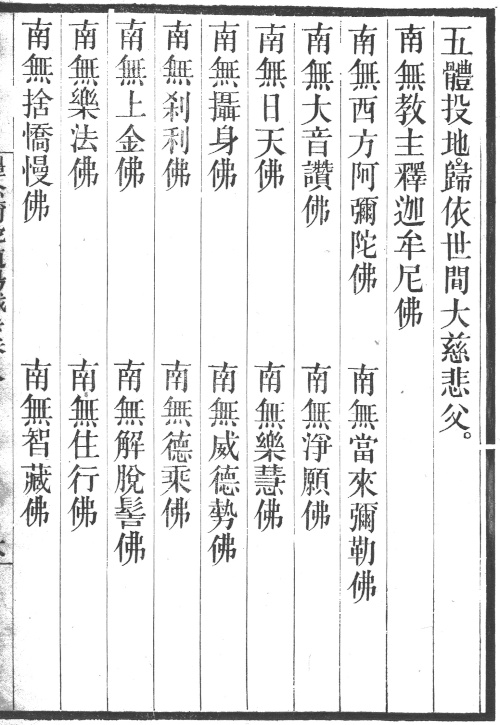 五體投地。歸依世間大慈悲父。
南無教主釋迦牟尼佛
南無西方阿彌陀佛 南無當來彌勒佛
南無大音讚佛 南無淨願佛
南無日天佛 南無樂慧佛
南無攝身佛 南無威德勢佛
南無刹利佛 南無德乘佛
南無上金佛 南無解脫髻佛
南無樂法佛 南無住行佛
南無捨憍慢佛 南無智藏佛